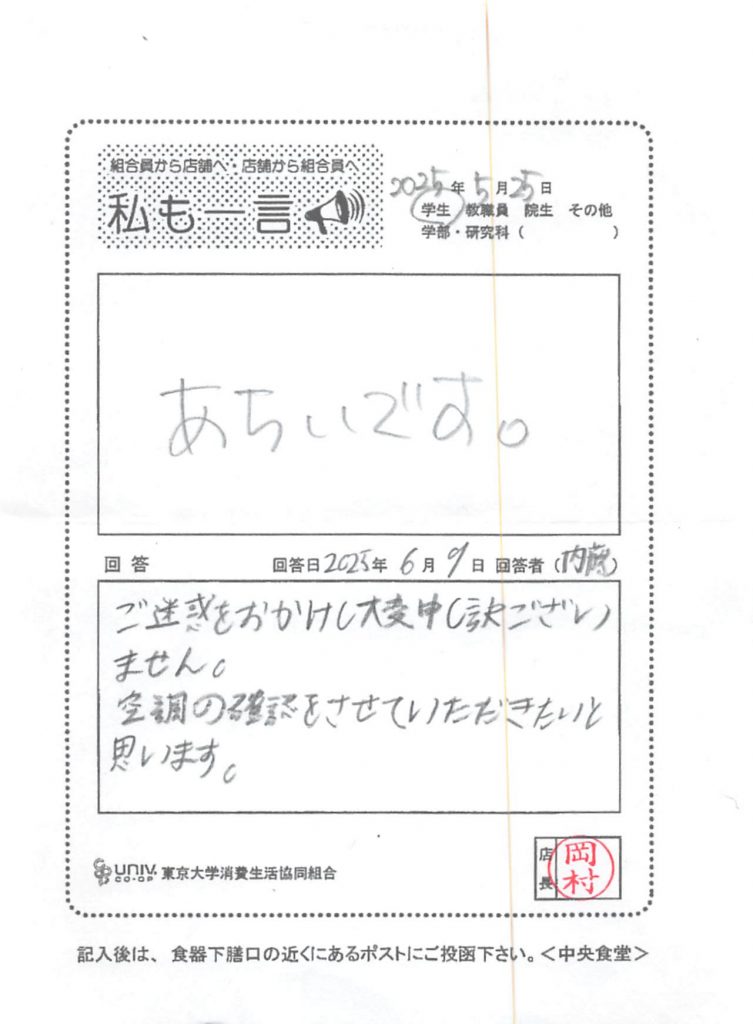 組合員から店舗へ・店舗から組合員へ
私も一言
2025年 5月 25日
学生 教職員 院生 その他
学部・研究科（ ）
あちいです。
回答 回答日2025年 6月 9日 回答者（内藤）
ご迷惑をおかけし大変申し訳ござい
ません。
空調の確認をさせていただきたいと
思います。
UNIV.
CO-OP
東京大学消費生活協同組合
店長
岡村
記入後は、食器下膳口の近くにあるポストにご投函下さい。＜中央食堂＞